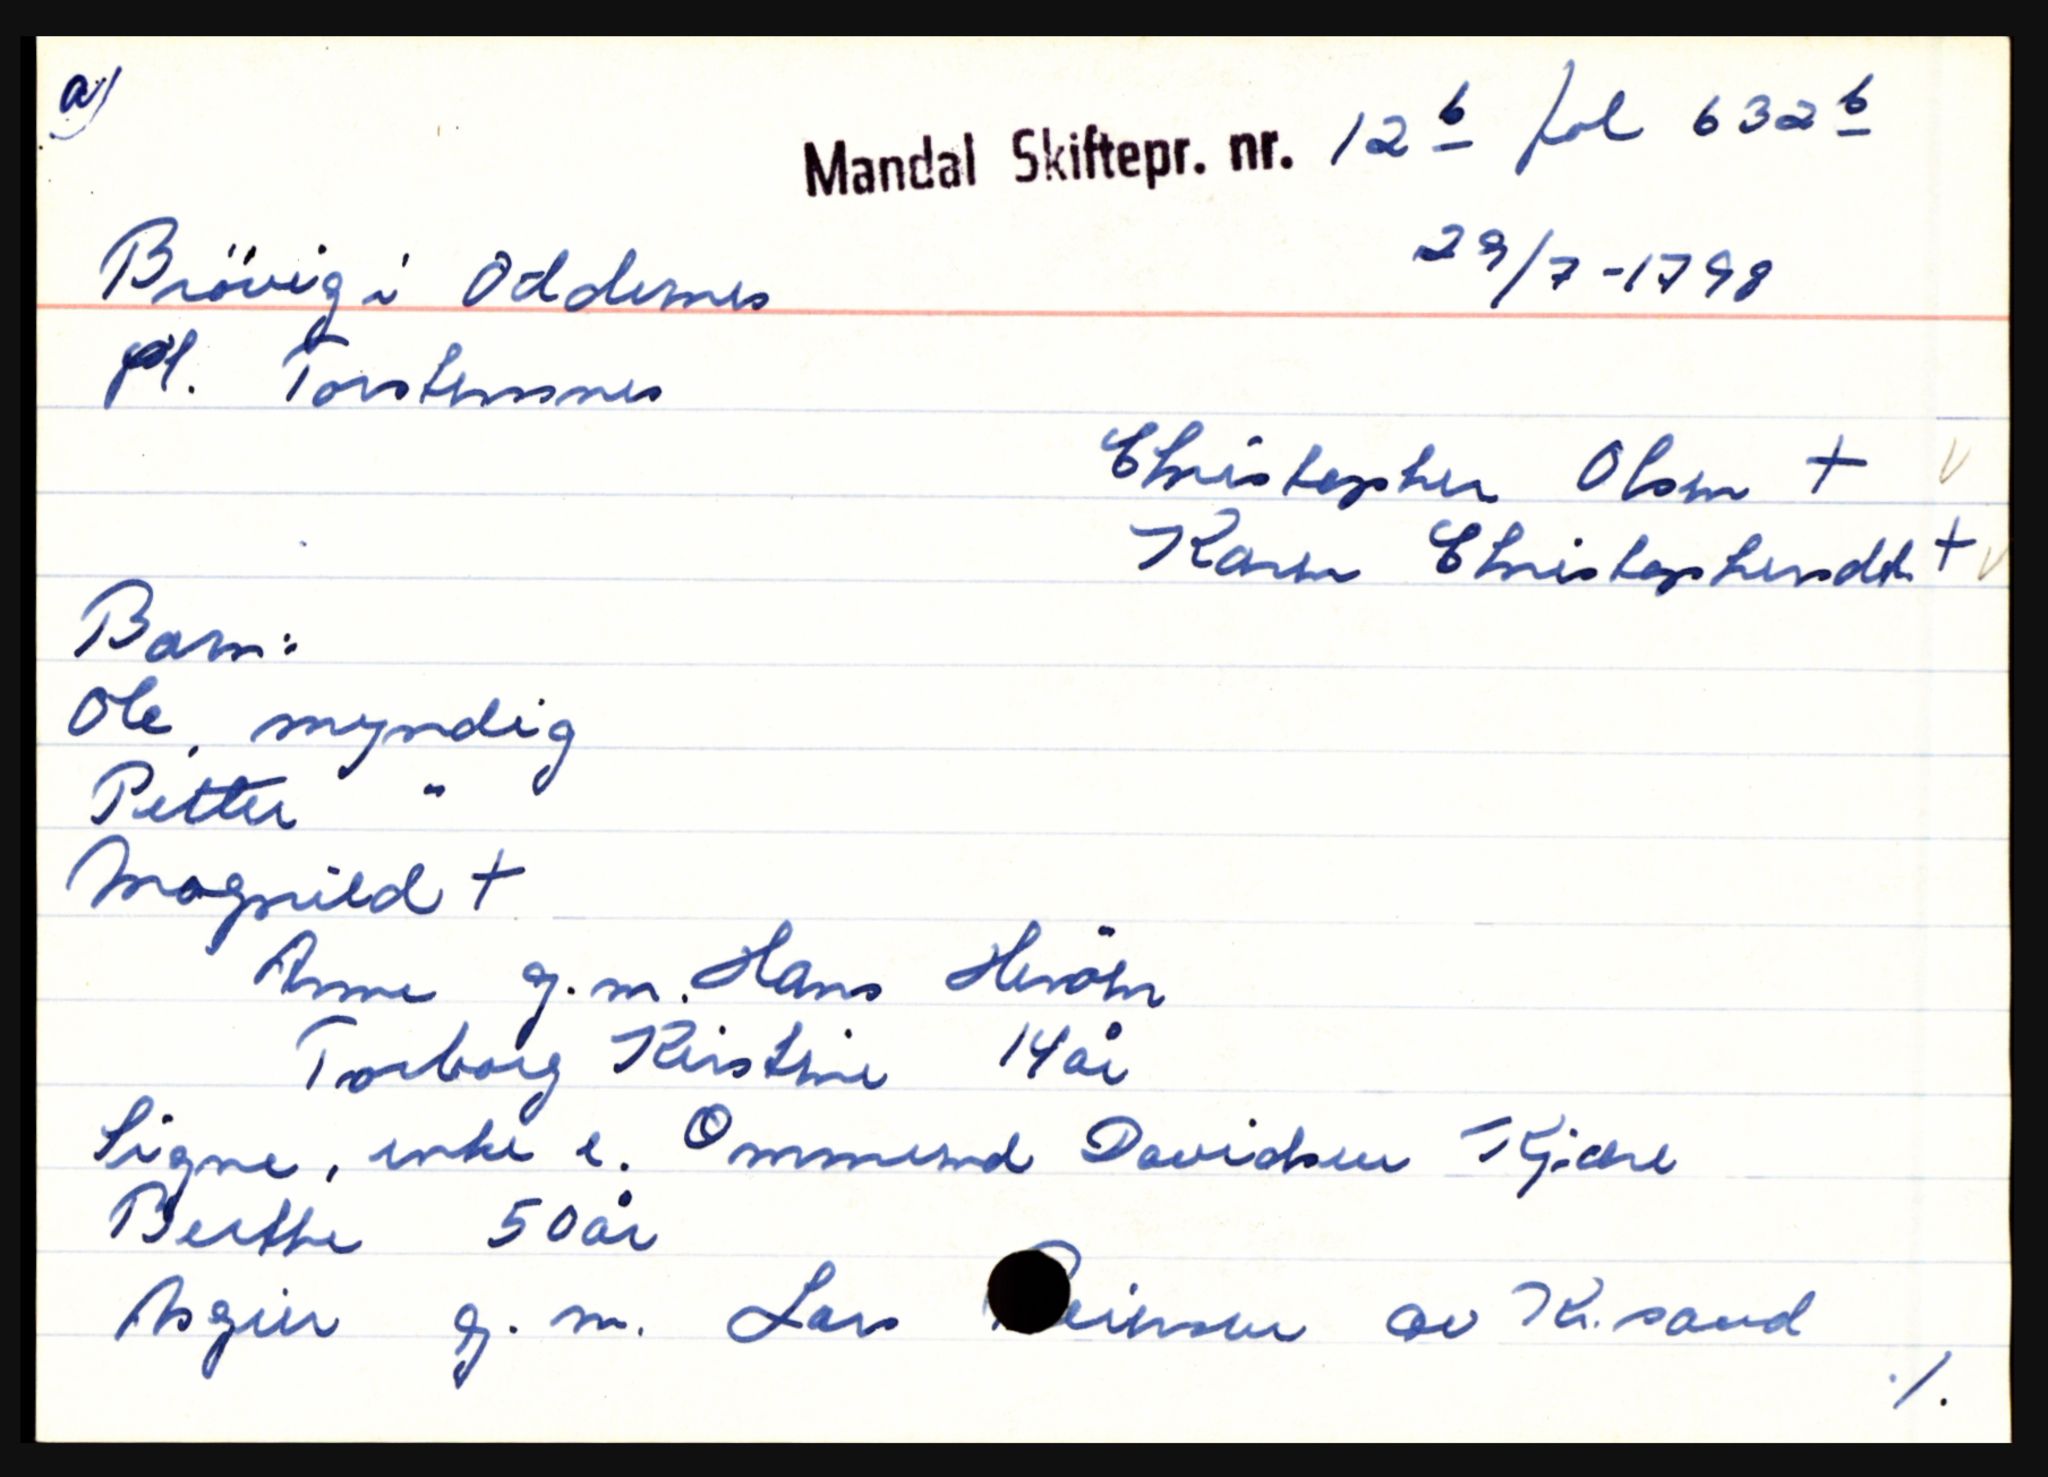 a)
Mandal Skiftepr. nr. 12 b fol 632 b
29/7-1798
Brövig i Oddernes
pl. Torstensnes
Christopher Olsen +
Karen Christophersdt. +
Barn:
Ole, myndig
Petter "
Magnild +
Anne g.m. Hans Heröen
Torborg Kirstine 14 år
Signe, enke e. Ommund Davidsen Kjære
Berthe 50 år
Asgier g. m. Lars av Kr.sand
./.